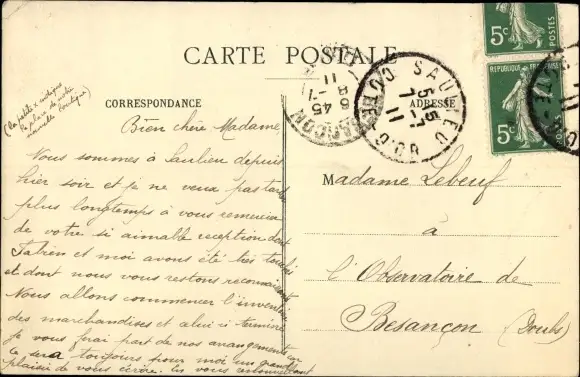 CARTE POSTALE
CORRESPONDANCE
ADRESSE
(La petite x indique
la place de notre
nouvelle boutique)
Bien chère Madame,
Nous sommes à Saulieu depuis
hier soir et je ne veux pas tarder
plus longtemps à vous remercier
de votre si aimable réception dont
et moi avons été très touchés
et dont nous vous restons reconnaissants
Nous allons commencer l'inventaire
des marchandises et celui-ci terminé
je vous ferai part de nos arrangements car
ce sera toujours pour moi un grand
plaisir de vous écrire. En vous renouvellant
Madame Lebeuf
à
l'Observatoire de
Besançon (Doubs)
SAULIEU
CÔTE-D'OR
5-7
11
6 45
8-7
11
5c
POSTES
RÉPUBLIQUE FRANÇAISE
5c